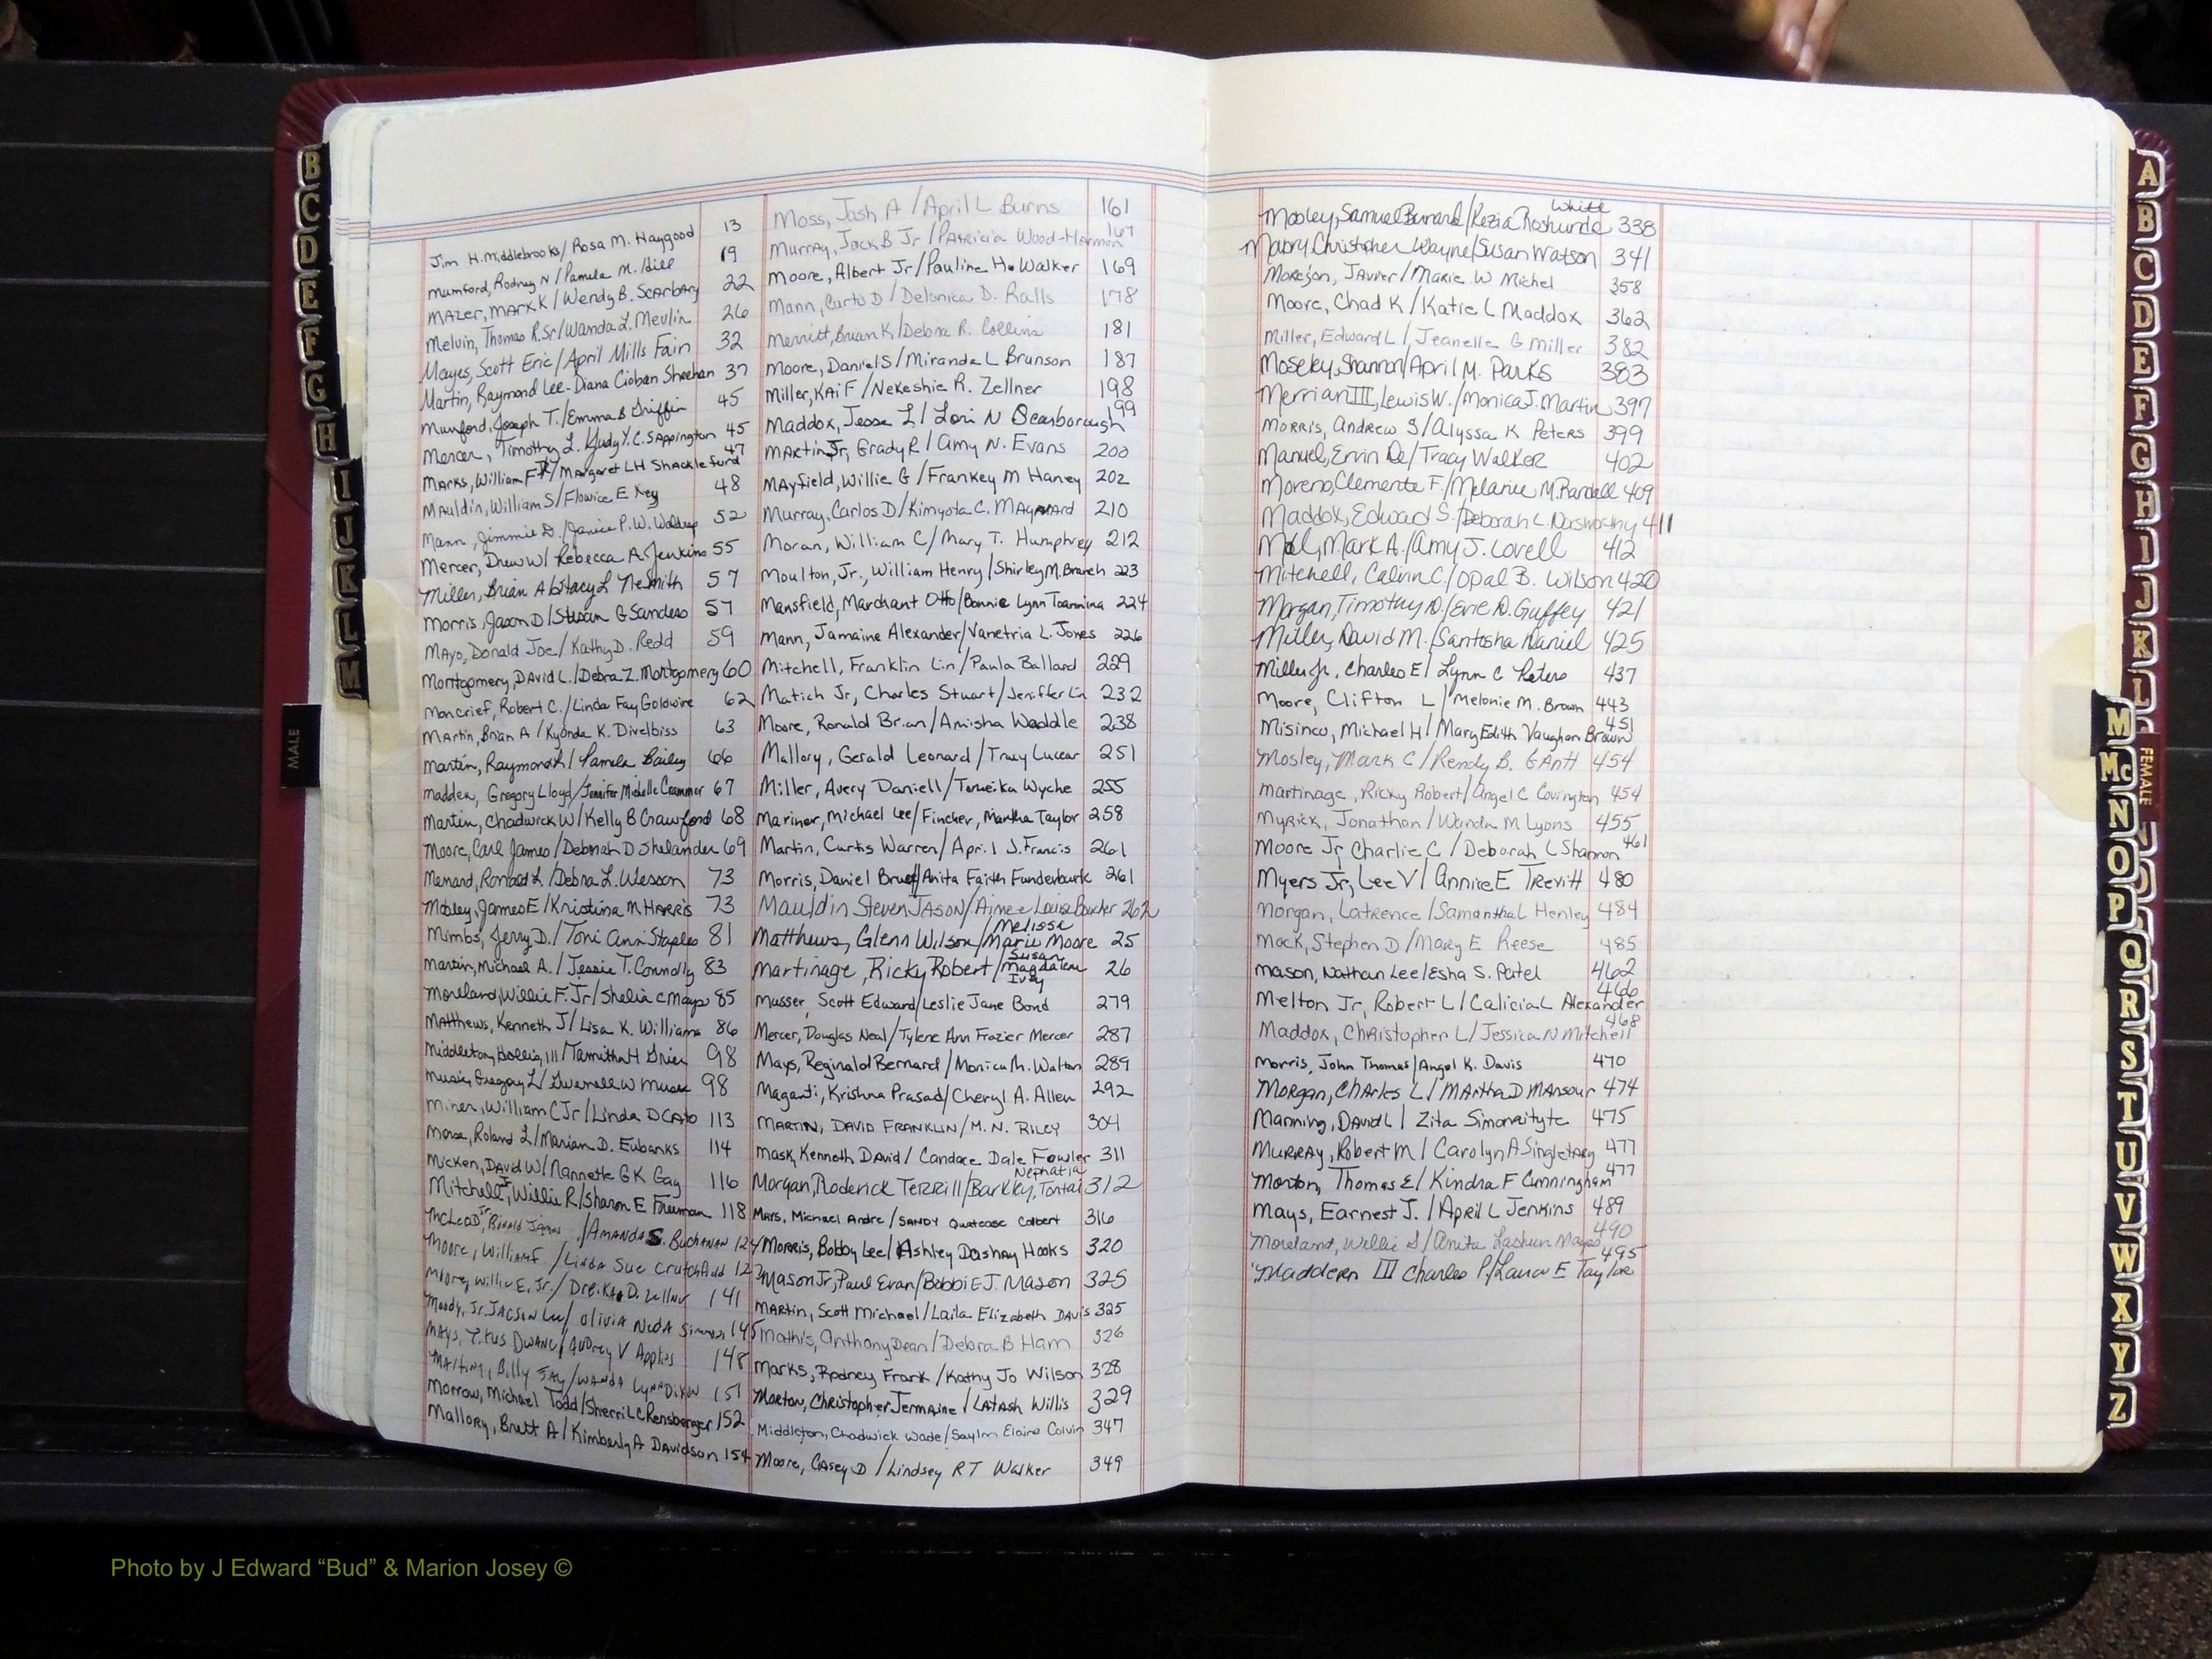 Jim H. Middlebrooks / Rosa M. Haygood 13
Mumford, Rodney N / Pamela M. Hill 19
Mazer, Mark K / Wendy B. Scarbary 22
Melvin, Thomas R. Sr / Wanda L. Mevlin 26
Mayes, Scott Eric / April Mills Fain 32
Martin, Raymond Lee - Diana Cioban Sheehan 37
Munford, Joseph T. / Emma B Griffin 45
Mercer, Timothy L. Judy Y. C. Sappington 45
Marks, William F Jr / Margaret LH Shackleford 47
Mauldin, William S / Flowice E Key 48
Mann, Jimmie D. / Janice P. W. 52
Mercer, Drew W / Rebecca A. Jenkins 55
Miller, Brian A / Stacy L NeSmith 57
Morris, Jason D / Susan G Sanders 57
Mayo, Donald Joe / Kathy D. Redd 59
Montgomery, David L. / Debra Z. Montgomery 60
Moncrief, Robert C. / Linda Fay Goldwire 62
Martin, Brian A / Kyonda K. Divelbiss 63
Martin, Raymond / Pamela Bailey 66
Madden, Gregory Lloyd / Jennifer Michelle Crammer 67
Martin, Chadwick W / Kelly B Crawford 68
Moore, Carl James / Deborah D Shelander 69
Menard, Ronald L / Debra L. Wesson 73
Mobley, James E / Kristina M Harris 73
Mimbs, Jerry D. / Toni Ann Staples 81
Martin, Michael A. / Jessie T. Connolly 83
Moreland, Willie F. Jr / Shelia C Mays 85
Matthews, Kenneth J / Lisa K. Williams 86
Middleton, Hollis, III / Tamitha H Grier 98
Music, Gregory L / Gwanell W Music 98
Miner, William C Jr / Linda D Cato 113
Morse, Roland L / Marian D. Eubanks 114
Micken, David W / Nannette GK Gay 116
Mitchell Jr, Willie R / Sharon E Freeman 118
McLeod Jr, Ronald James / Amanda S. Buchanan 124
Moore, William F / Linda Sue Crutchfield 127
Moore, Willie E. Jr. / Dreika D. Zellner 141
Moody, Jr. Jackson Lee / Olivia NedA 145
Mays, Titus Dwane / Audrey V Appling 148
Martin, Billy Jay / Wanda Lynn Dixon 151
Morrow, Michael Todd / Sherri LC Rensberger 152
Mallory, Brett A / Kimberly A Davidson 154
Moss, Josh A / April L Burns 161
Murray, Jack B Jr / Patricia Wood-Harmon 167
Moore, Albert Jr / Pauline H. Walker 169
Mann, Curtis D / Delonica D. Ralls 178
Merritt, Brian K / Debra R. Collins 181
Moore, Daniel S / Miranda L Brunson 187
Miller, Kai F / Nekeshie R. Zellner 198
Maddox, Jesse L / Lori N Scarborough 199
Martin Jr, Grady R / Amy N. Evans 200
Mayfield, Willie G / Frankey M Haney 202
Murray, Carlos D / Kimyota C. Maynard 210
Moran, William C / Mary T. Humphrey 212
Moulton, Jr., William Henry / Shirley M. Branch 223
Mansfield, Marchant Otto / Bonnie Lynn Toannina 224
Mann, Jamaine Alexander / Vanetria L. Jones 226
Mitchell, Franklin Lin / Paula Ballard 229
Matich Jr, Charles Stuart / Jeniffer Lin 232
Moore, Ronald Brian / Amisha Waddle 238
Mallory, Gerald Leonard / Tracy Lucear 251
Miller, Avery Daniell / Tomeika Wyche 255
Mariner, Michael Lee / Fincher, Martha Taylor 258
Martin, Curtis Warren / April J. Francis 261
Morris, Daniel Bruce / Anita Faith Funderburk 261
Mauldin Steven Jason / Aimee Louise Boucher 262
Matthews, Glenn Wilson / Melissa Marie Moore 25
Martinage, Ricky Robert / Susan Magdalene Ivey 26
Musser, Scott Edward / Leslie Jane Bond 279
Mercer, Douglas Neal / Tylene Ann Frazier Mercer 287
Mays, Reginald Bernard / Monica M. Walton 289
Maganti, Krishna Prasad / Cheryl A. Allen 292
Martin, David Franklin / M. N. Riley 304
Mask, Kenneth David / Candace Dale Fowler 311
Morgan, Roderick Terrill / Barkley, Tontai Nephatia 312
Mays, Michael Andre / Sandy Quatease Colbert 316
Morris, Bobby Lee / Ashley Dashay Hooks 320
Mason Jr, Paul Evan / Bobbi E J. Mason 325
Martin, Scott Michael / Laila Elizabeth Davis 325
Mathis, Anthony Dean / Debra B Ham 326
Marks, Rodney Frank / Kathy Jo Wilson 328
Morton, Christopher Jermaine / Latash Willis 329
Middleton, Chadwick Wade / Saylm Elaine Colvin 347
Moore, Casey D / Lindsey RT Walker 349
Mobley, Samuel Bunard / Kezia Roshunda White 338
Mabry Christopher Wayne / Susan Watson 341
Morejon, Javier / Marie W Michel 358
Moore, Chad K / Katie L Maddox 362
Miller, Edward L / Jeanelle G Miller 382
Moseley, Shannon / April M. Parks 383
Merrian III, Lewis W. / Monica J. Martin 397
Morris, Andrew S / Alyssa K Peters 399
Manuel, Ervin De / Tracy Walker 402
Moreno, Clemente F. / Melanie M. Randall 409
Maddox, Edward S. / Deborah L. Norsworthy 411
Mark A. / Amy J. Lovell 412
Mitchell, Calvin C. / Opal B. Wilson 420
Morgan, Timothy D. / Evie D. Guffey 421
Miller, David M. / Santosha Daniel 425
Miller Jr, Charles E / Lynn C Peters 437
Moore, Clifton L / Melonie M. Brown 443
Misinco, Michael H / Mary Edith Vaughan Brown 451
Mosley, Mark C / Rendy B. Gantt 454
Martinage, Ricky Robert / Angel C Covington 454
Myrick, Jonathan / Wanda M Lyons 455
Moore Jr, Charlie C / Deborah L Shannon 461
Myers Jr, Lee V / Annice E Trevitt 480
Morgan, Latrence / Samantha L Henley 484
Mack, Stephen D / Mary E Reese 485
Mason, Nathan Lee / Esha S. Patel 462
Melton Jr, Robert L / Calicia L Alexander 466
Maddox, Christopher L / Jessica N Mitchell 468
Morris, John Thomas / Angel K. Davis 470
Morgan, Charles L / Martha D Mansour 474
Manning, David L / Zita Simonaityte 475
Murray, Robert M / Carolyn A Singletary 477
Morton, Thomas E / Kindra F Cunningham 477
Mays, Earnest J. / April L Jenkins 489
Moreland, Willie S / Anita Lashun Mayes 490
Maddern III Charles P. / Laura E Taylor 495
B
C
D
E
F
G
H
I
J
K
L
M
MALE
A
B
C
D
E
F
G
H
I
J
K
L
M
Mc
FEMALE
N
O
P
Q
R
S
T
U
V
W
X
Y
Z
Photo by J Edward “Bud” & Marion Josey ©